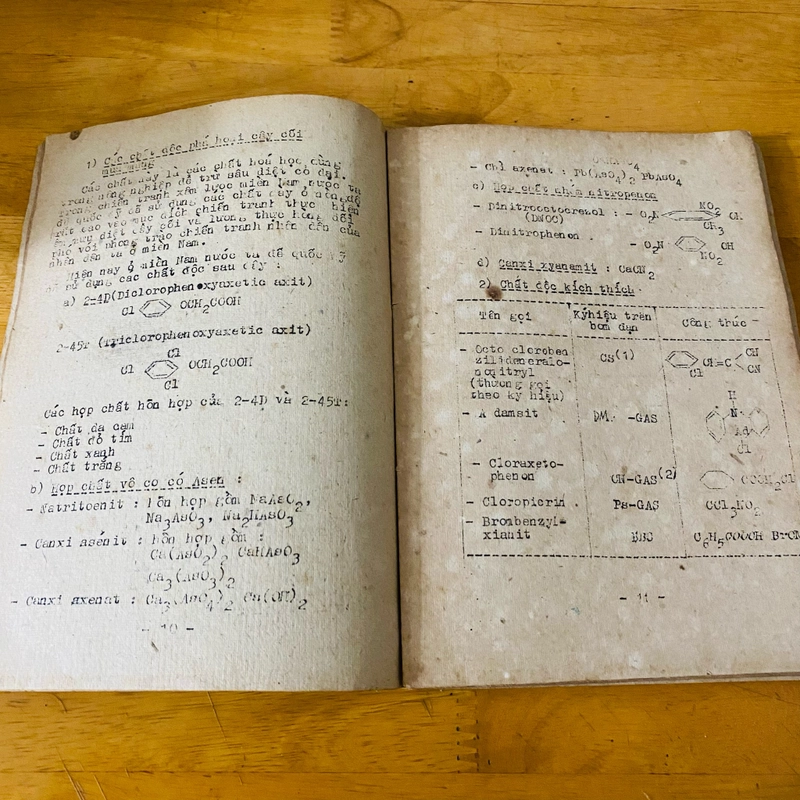 1) Các chất độc phá hoại cây cối
mùa màng
Các chất này là các chất hoá học dùng
trong nông nghiệp để trừ sâu diệt cỏ dại.
trong chiến tranh xâm lược miền Nam nước ta
đế quốc Mỹ đã sử dụng các chất này ở nồng độ
rất cao vào mục đích chiến tranh thực hiện
huỷ diệt cây cối và lương thực hòng đối
phó với phong trào chiến tranh nhân dân của
nhân dân ta ở miền Nam.
Hiện nay ở miền Nam nước ta đế quốc Mỹ
sử dụng các chất độc sau đây :
a) 2-4D(Diclorophenoxyaxetic axit)
Cl OCH2COOH
2-45T (Triclorophenoxyaxetic axit)
Cl
Cl OCH2COOH
Cl
Các hợp chất hỗn hợp của 2-4D và 2-45T:
- Chất da cam
- Chất đỏ tím
- Chất xanh
- Chất trắng
b) Hợp chất vô cơ có Asen :
- Natritoenit : hỗn hợp gồm NaAsO2,
Na3AsO3, Na2HAsO3
- Canxi asênit : hỗn hợp gồm :
Ca(AsO2)2 CaHAsO3
Ca3(AsO3)2
- Canxi axenat : Ca3(AsO4)2 Ca(OH)2
- 10 -
- Chì axenat : Pb(AsO4)2 PbAsO4
c) Hợp chất nhóm nitrophenon
- Dinitrooctocretol : - O2N NO2 CH
(DNOC) CH3
- Dinitrophenon . - O2N OH
NO2
d) Canxi xyanamit : CaCN2
2) Chất độc kích thích.
Tên gọi Kýhiệu trên Công thức
bom đạn
- Octo cloroben CS(1) CH=C CN
zilidenmalo- CN
nonitryl
(thường gọi
theo ký hiệu)
H
- A damsit DM -GAS N
Cl
- Cloraxeto- CN-GAS(2) COCH2Cl
phenon
- Cloropicrin . Ps-GAS CCl3NO2
- Brombenzyl- BBC
xianit
- 11 -